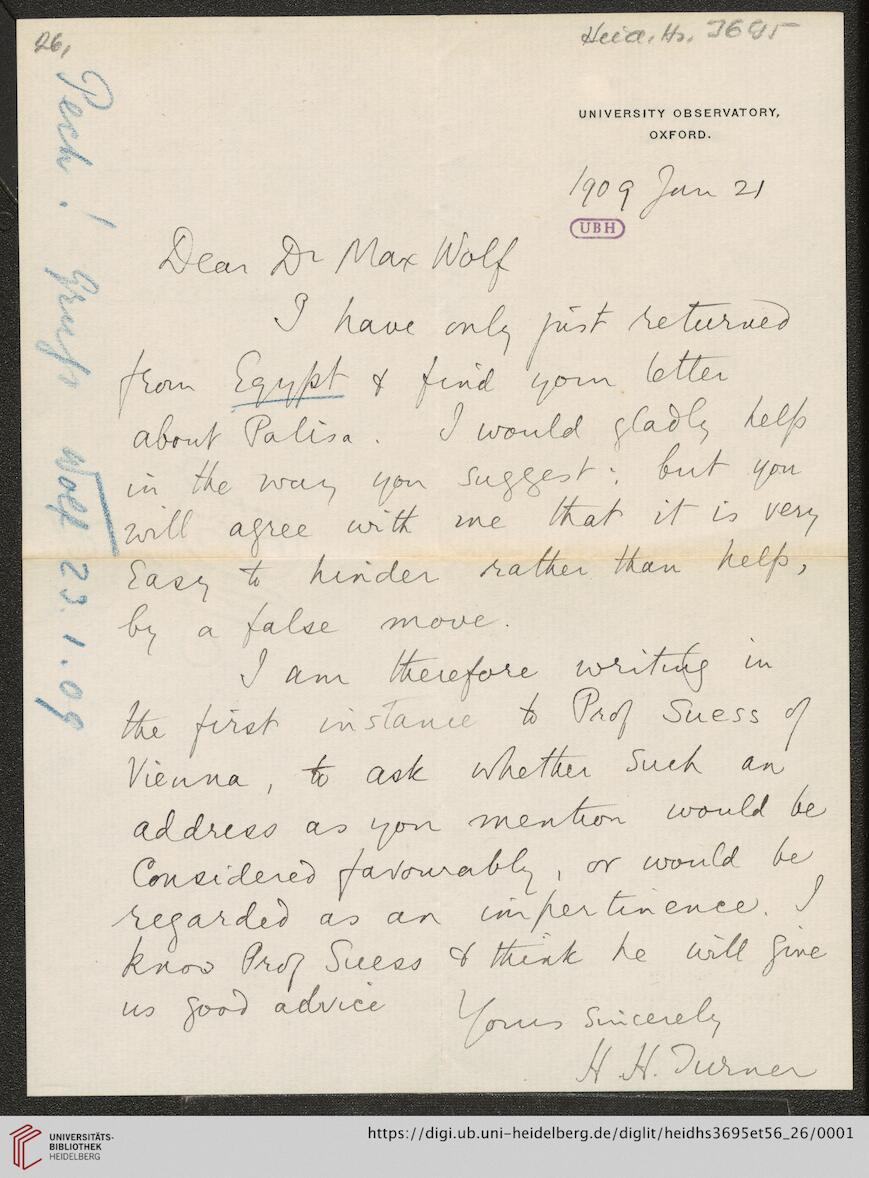 26,
Heid. Hs. 3695
UNIVERSITY OBSERVATORY,
OXFORD.
1909 Jan 21
UBH
Dear Dr Max Wolf
I have only just returned
from Egypt & find your letter
about Palisa. I would gladly help
in the way you suggest: but you
will agree with me that it is very
easy to hinder rather than help,
by a false move.
I am therefore writing in
the first instance to Prof Suess of
Vienna, to ask whether such an
address as you mention would be
Considered favourably, or would be
regarded as an impertinence. I
know Prof Suess & think he will give
us good advice
Yours sincerely
H. H. Turner
Pech! Gruß Wolf 23.1.09
UNIVERSITÄTS-
BIBLIOTHEK
HEIDELBERG
https://digi.ub.uni-heidelberg.de/diglit/heidhs3695et56_26/0001